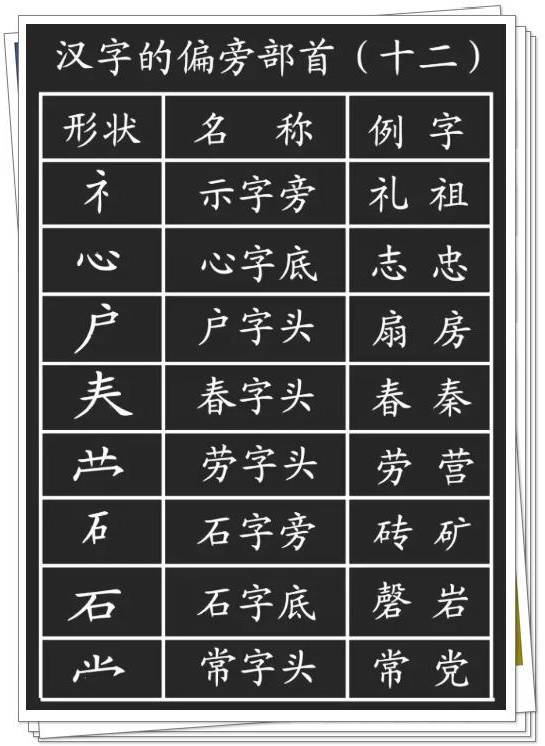 汉字的偏旁部首（十二）
形状 名称 例字
礻 示字旁 礼 祖
心 心字底 志 忠
户 户字头 扇 房
𡗗 春字头 春 秦
龷 劳字头 劳 营
石 石字旁 砖 矿
石 石字底 磬 岩
龸 常字头 常 党